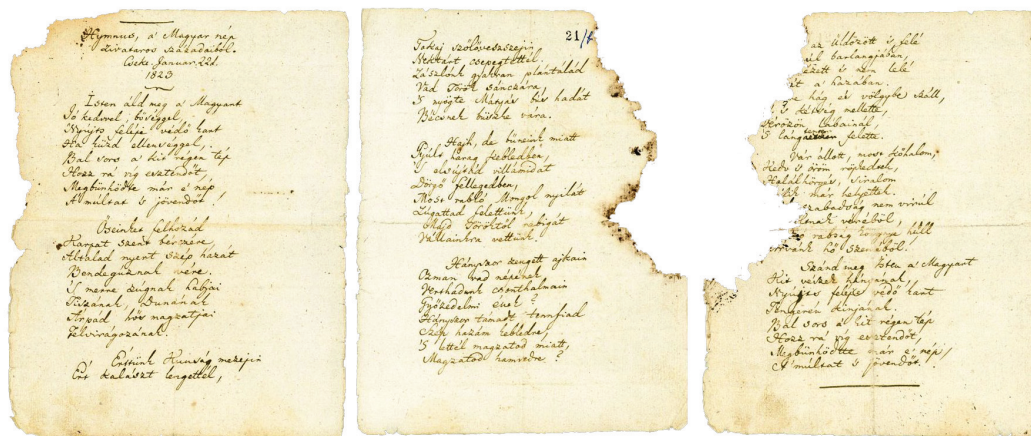 Hymnus, a' Magyar nép
zivataros századaiból.
Cseke. Januar. 22d.
1823
Isten áld meg a' Magyart
Jó kedvvel, bőséggel,
Nyújts feléje védő kart
Ha küzd ellenséggel;
Bal sors a' kit régen tép
Hozz rá víg esztendőt,
Megbünhödte már e' nép
A' múltat 's jövendőt!
Őseinket felhozád
Kárpát szent bérczére,
Általad nyert szép hazát
Bendegúznak vére.
'S merre zúgnak habjai
Tiszának, Dunának
Árpád hős magzatjai
Felvirágozának.
Értünk Kunság mezején
Ért kalászt lengettél,
21
Tokaj szőlővesszején
Nektárt csepegtettél.
Zászlónk gyakran plántálád
Vad Török sánczára,
'S nyögte Mátyás bús hadát
Bécsnek büszke vára.
Hajh, de bűneink miatt
Gyúlt harag kebledben,
'S elsújtád villámidat
Dörgő fellegedben,
Most rabló Mongol nyilát
Zúgattad felettünk,
Majd Töröktől rabigát
Vállainkra vettünk.
Hányszor zengett ajkain
Ozman vad népének
Vert hadunk csonthalmain
Győzedelmi ének?
Hányszor támadt tennfiad
Szép hazám kebledre,
'S lettél magzatod miatt,
Magzatod hamvvedre?
az üldözött 's felé
barlangjában,
's nem lelé
a' hazában,
hág és völgybe száll,
kétség mellette,
Vérözön lábainál,
'S lángtenger felette.
Vár állott, most kőhalom,
Kedv 's öröm röpkedtek,
Halálhörgés, siralom
már helyettek.
szabadság nem virúl
véréből,
rabság könnye hull
hő szeméből!
Szánd meg Isten a' Magyart
Kit vészek hányának,
Nyújts feléje védő kart
Tengerén kínjának.
Bal sors a' kit régen tép
Hozz rá víg esztendőt,
Megbünhödte már e' nép
A' múltat 's jövendőt!